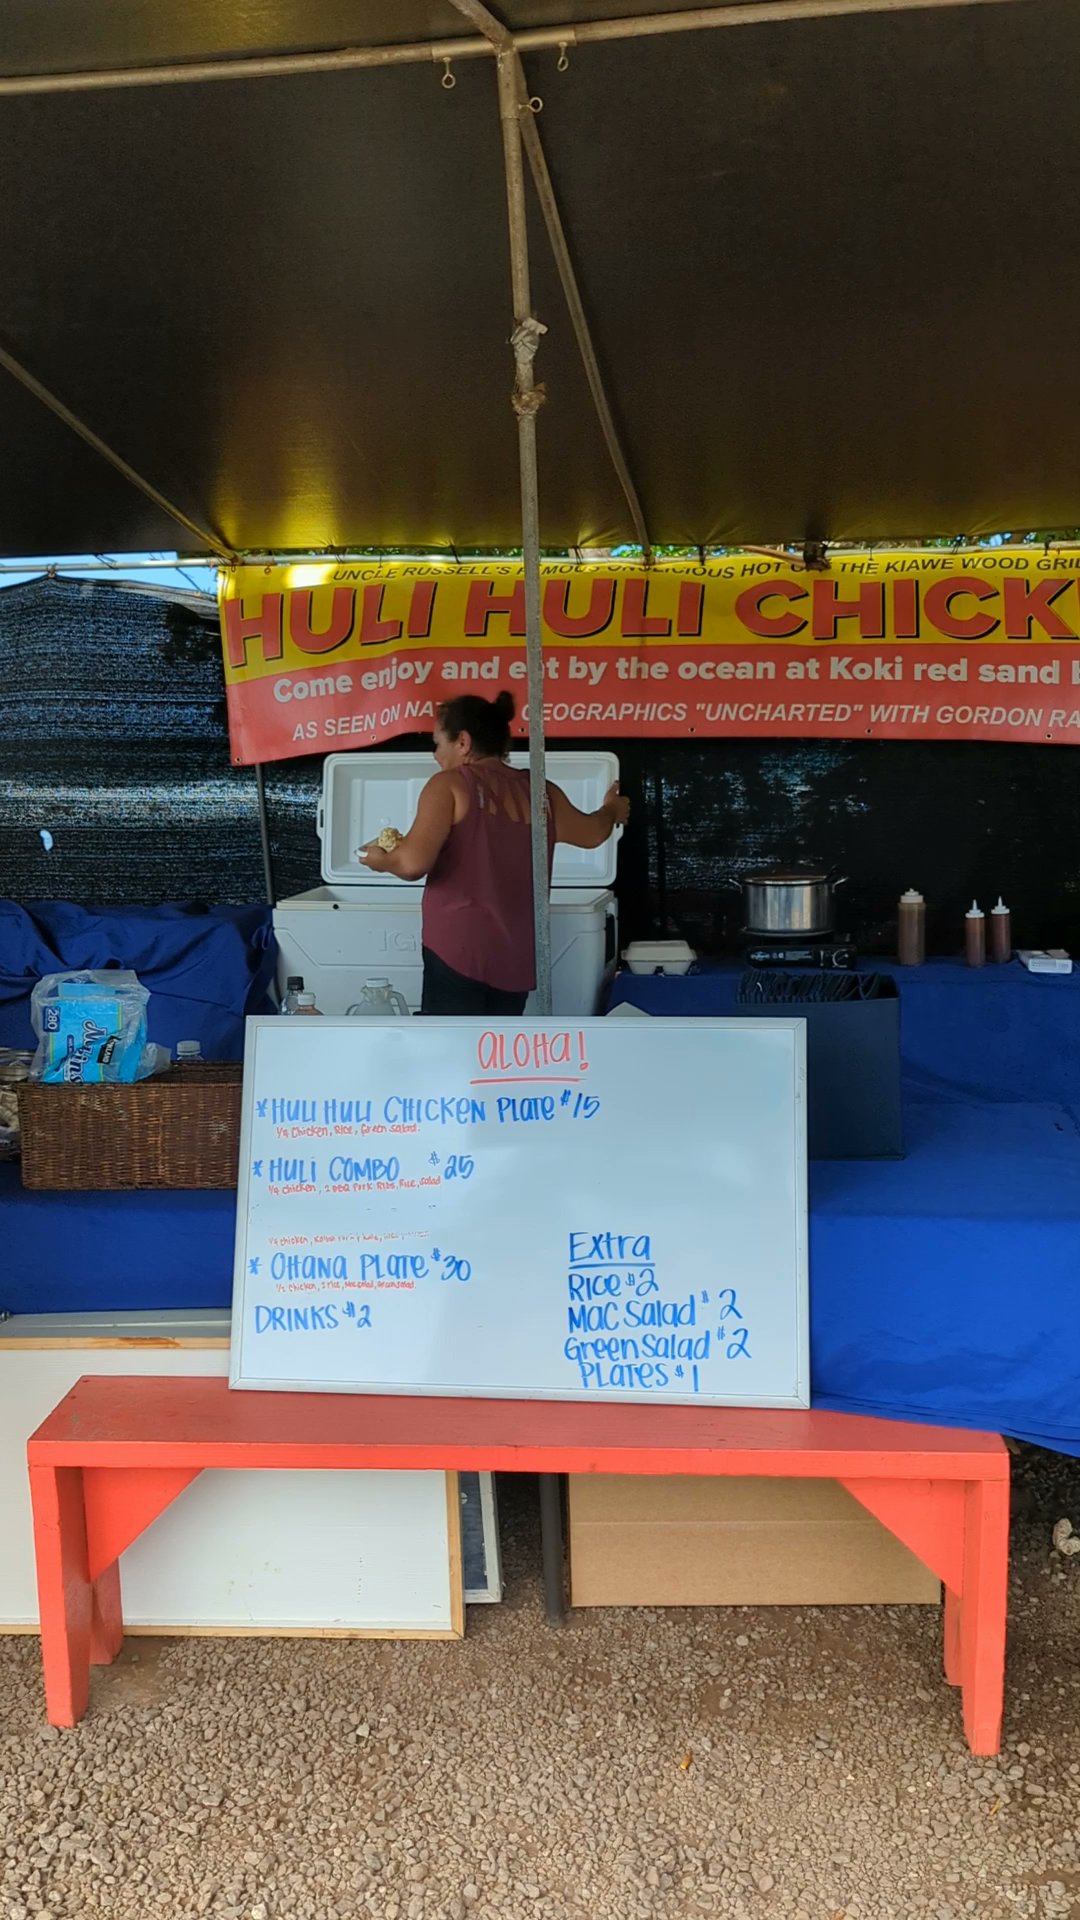 UNCLE RUSSELL'S HOT THE KIAWE WOOD
HULI HULI CHICK
Come enjoy and eat by the ocean at Koki red sand
AS SEEN ON GEOGRAPHICS "UNCHARTED" WITH GORDON RA
IG
280
ALOHA!
* HULI HULI CHICKEN PLATE $15
1/4 Chicken, Rice, Green Salad.
* HULI COMBO $25
1/4 Chicken, 2 BBQ Pork Ribs, Rice, Salad
1/4 Chicken,
* OHANA PLATE $30
1/2 Chicken, 2 Rice, Mac Salad, Green Salad.
DRINKS $2
Extra
RICE $2
MAC Salad $2
Green Salad $2
PLATES $1